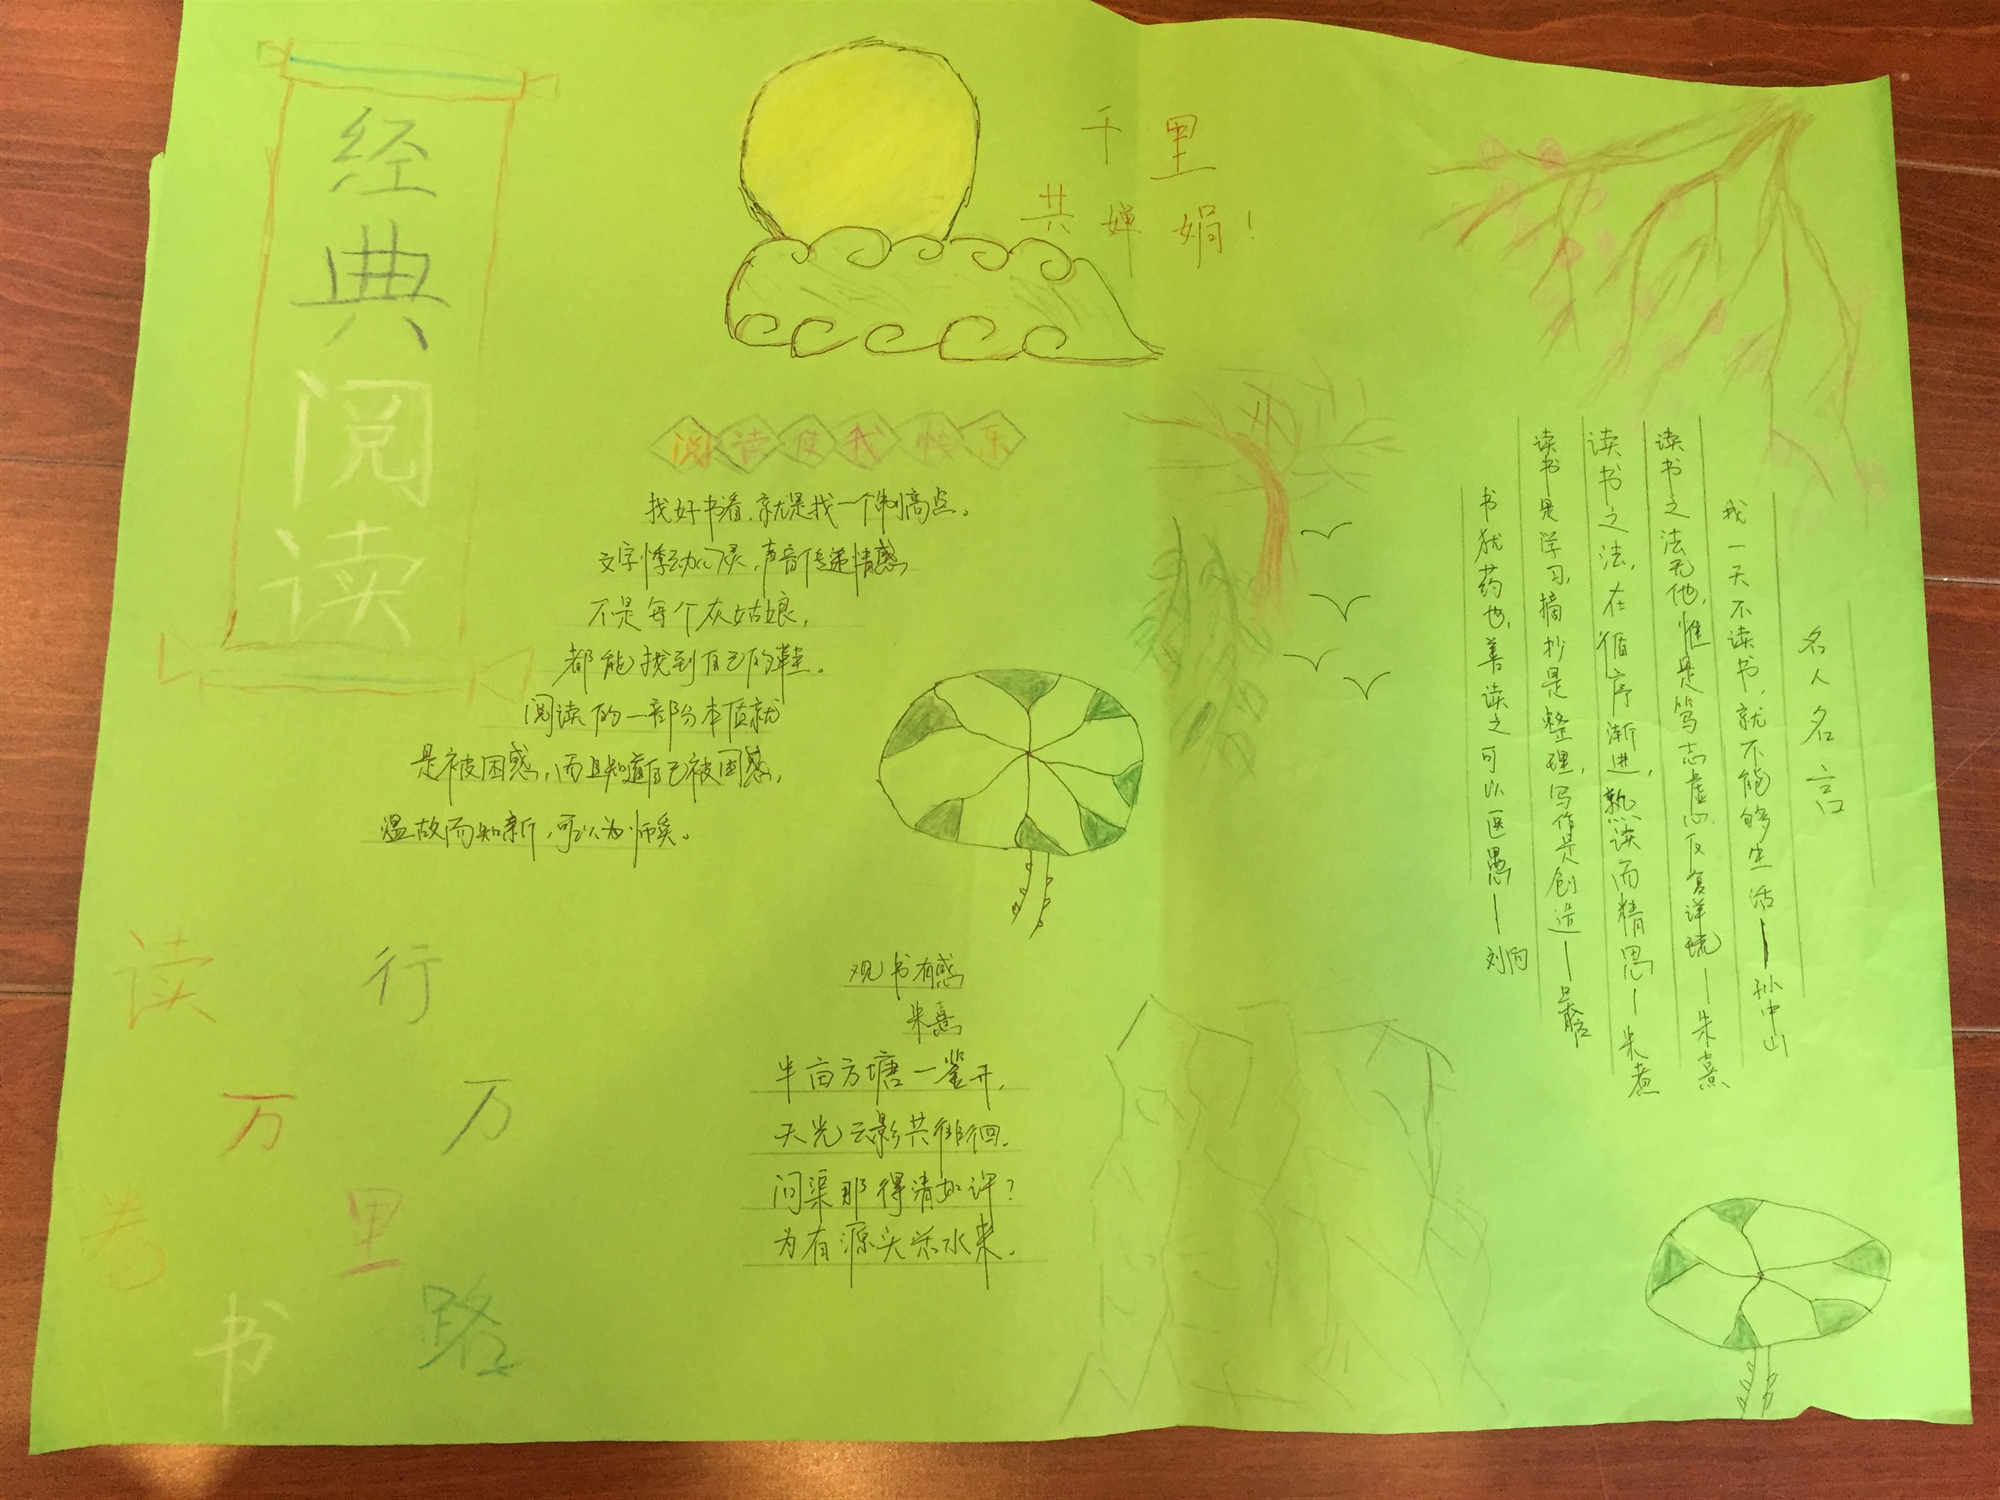 经典阅读
千里
共婵娟!
阅读使我快乐
找好书看,就是找一个制高点。
文字悸动心灵,声音传递情感
不是每个灰姑娘,
都能找到自己的鞋。
阅读的一部分本质就
是被困惑,而且知道自己被困惑,
温故而知新,可以为师矣。
读万卷书
行万里路
观书有感
朱熹
半亩方塘一鉴开,
天光云影共徘徊。
问渠那得清如许?
为有源头活水来。
名人名言
我一天不读书,就不能够生活——孙中山
读书之法无他,惟是笃志虚心反复详玩——朱熹
读书之法,在循序渐进,熟读而精思——朱煮
读书是学习,摘抄是整理,写作是创造——吴晗
书犹药也,善读之可以医愚——刘向